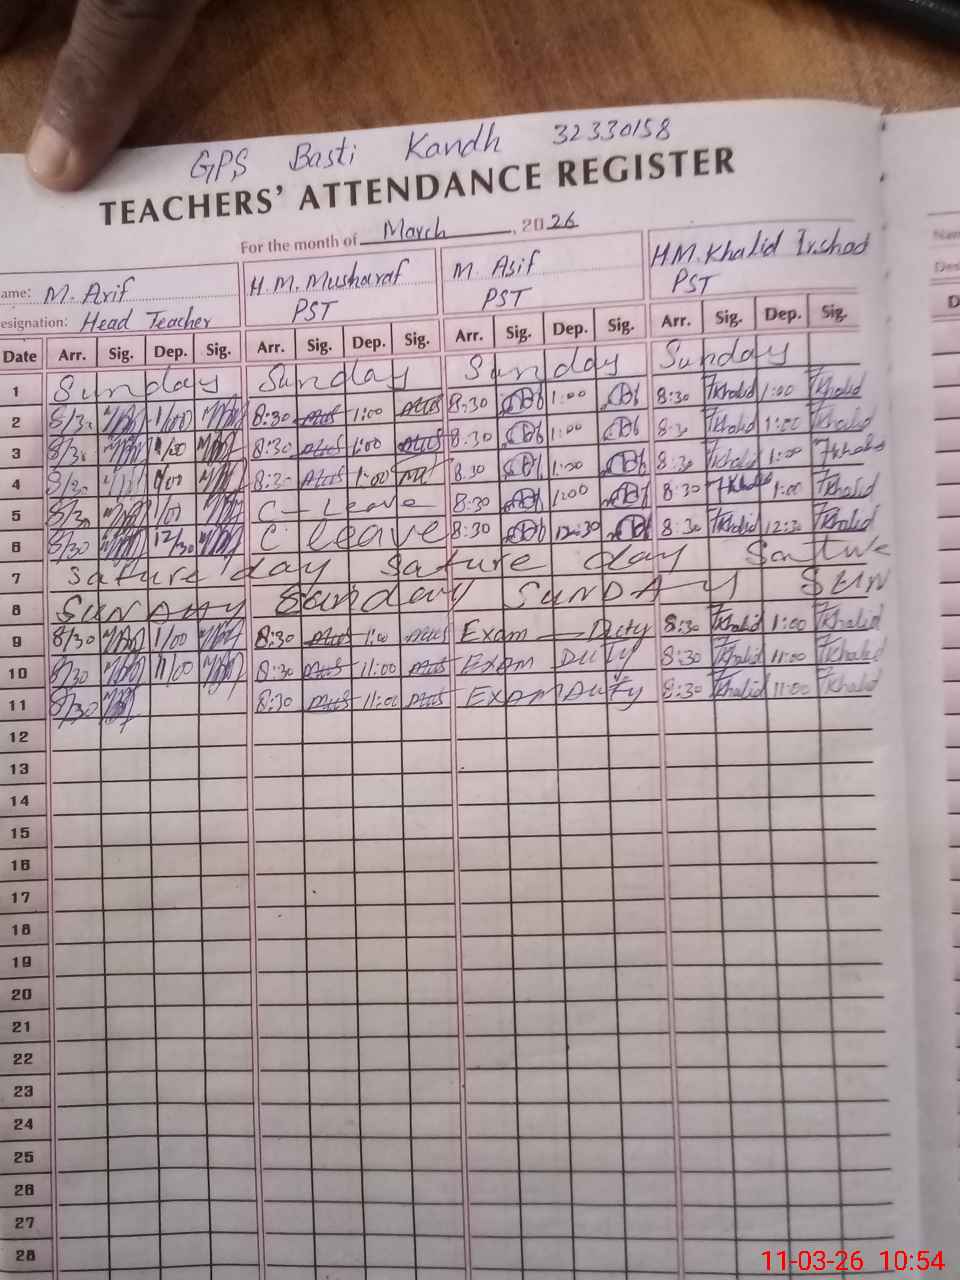 GPS Basti Kandh 32330158
TEACHERS' ATTENDANCE REGISTER
For the month of March, 2026
ame: M. Arif H.M. Musharaf M. Asif HM. Khalid Irshad
esignation: Head Teacher PST PST PST
Date Arr. Sig. Dep. Sig. Arr. Sig. Dep. Sig. Arr. Sig. Dep. Sig. Arr. Sig. Dep. Sig.
1 Sunday Sunday Sunday Sunday
2 8/30 1/00 8:30 1:00 8:30 1:00 8:30 Khalid 1:00 Khalid
3 8/30 1/00 8:30 1:00 8:30 1:00 8:30 Khalid 1:00 Khalid
4 8/30 1/00 8:30 1:00 8:30 1:00 8:30 Khalid 1:00 Khalid
5 8/30 1/01 C - Leave 8:30 1:00 8:30 Khalid 1:00 Khalid
6 8/30 12/30 C leave 8:30 12:30 8:30 Khalid 12:30 Khalid
7 Sature day Sature day Sature
8 SUNDAY Sunday SUNDAY SUN
9 8/30 1/00 8:30 1:00 Exam — Duty 8:30 Khalid 1:00 Khalid
10 8/30 11/00 8:30 11:00 Exam Duty 8:30 Khalid 11:00 Khalid
11 8/30 8:30 11:00 Exam Duty 8:30 Khalid 11:00 Khalid
12
13
14
15
16
17
18
19
20
21
22
23
24
25
26
27
28
Nam
Des
D
11-03-26 10:54